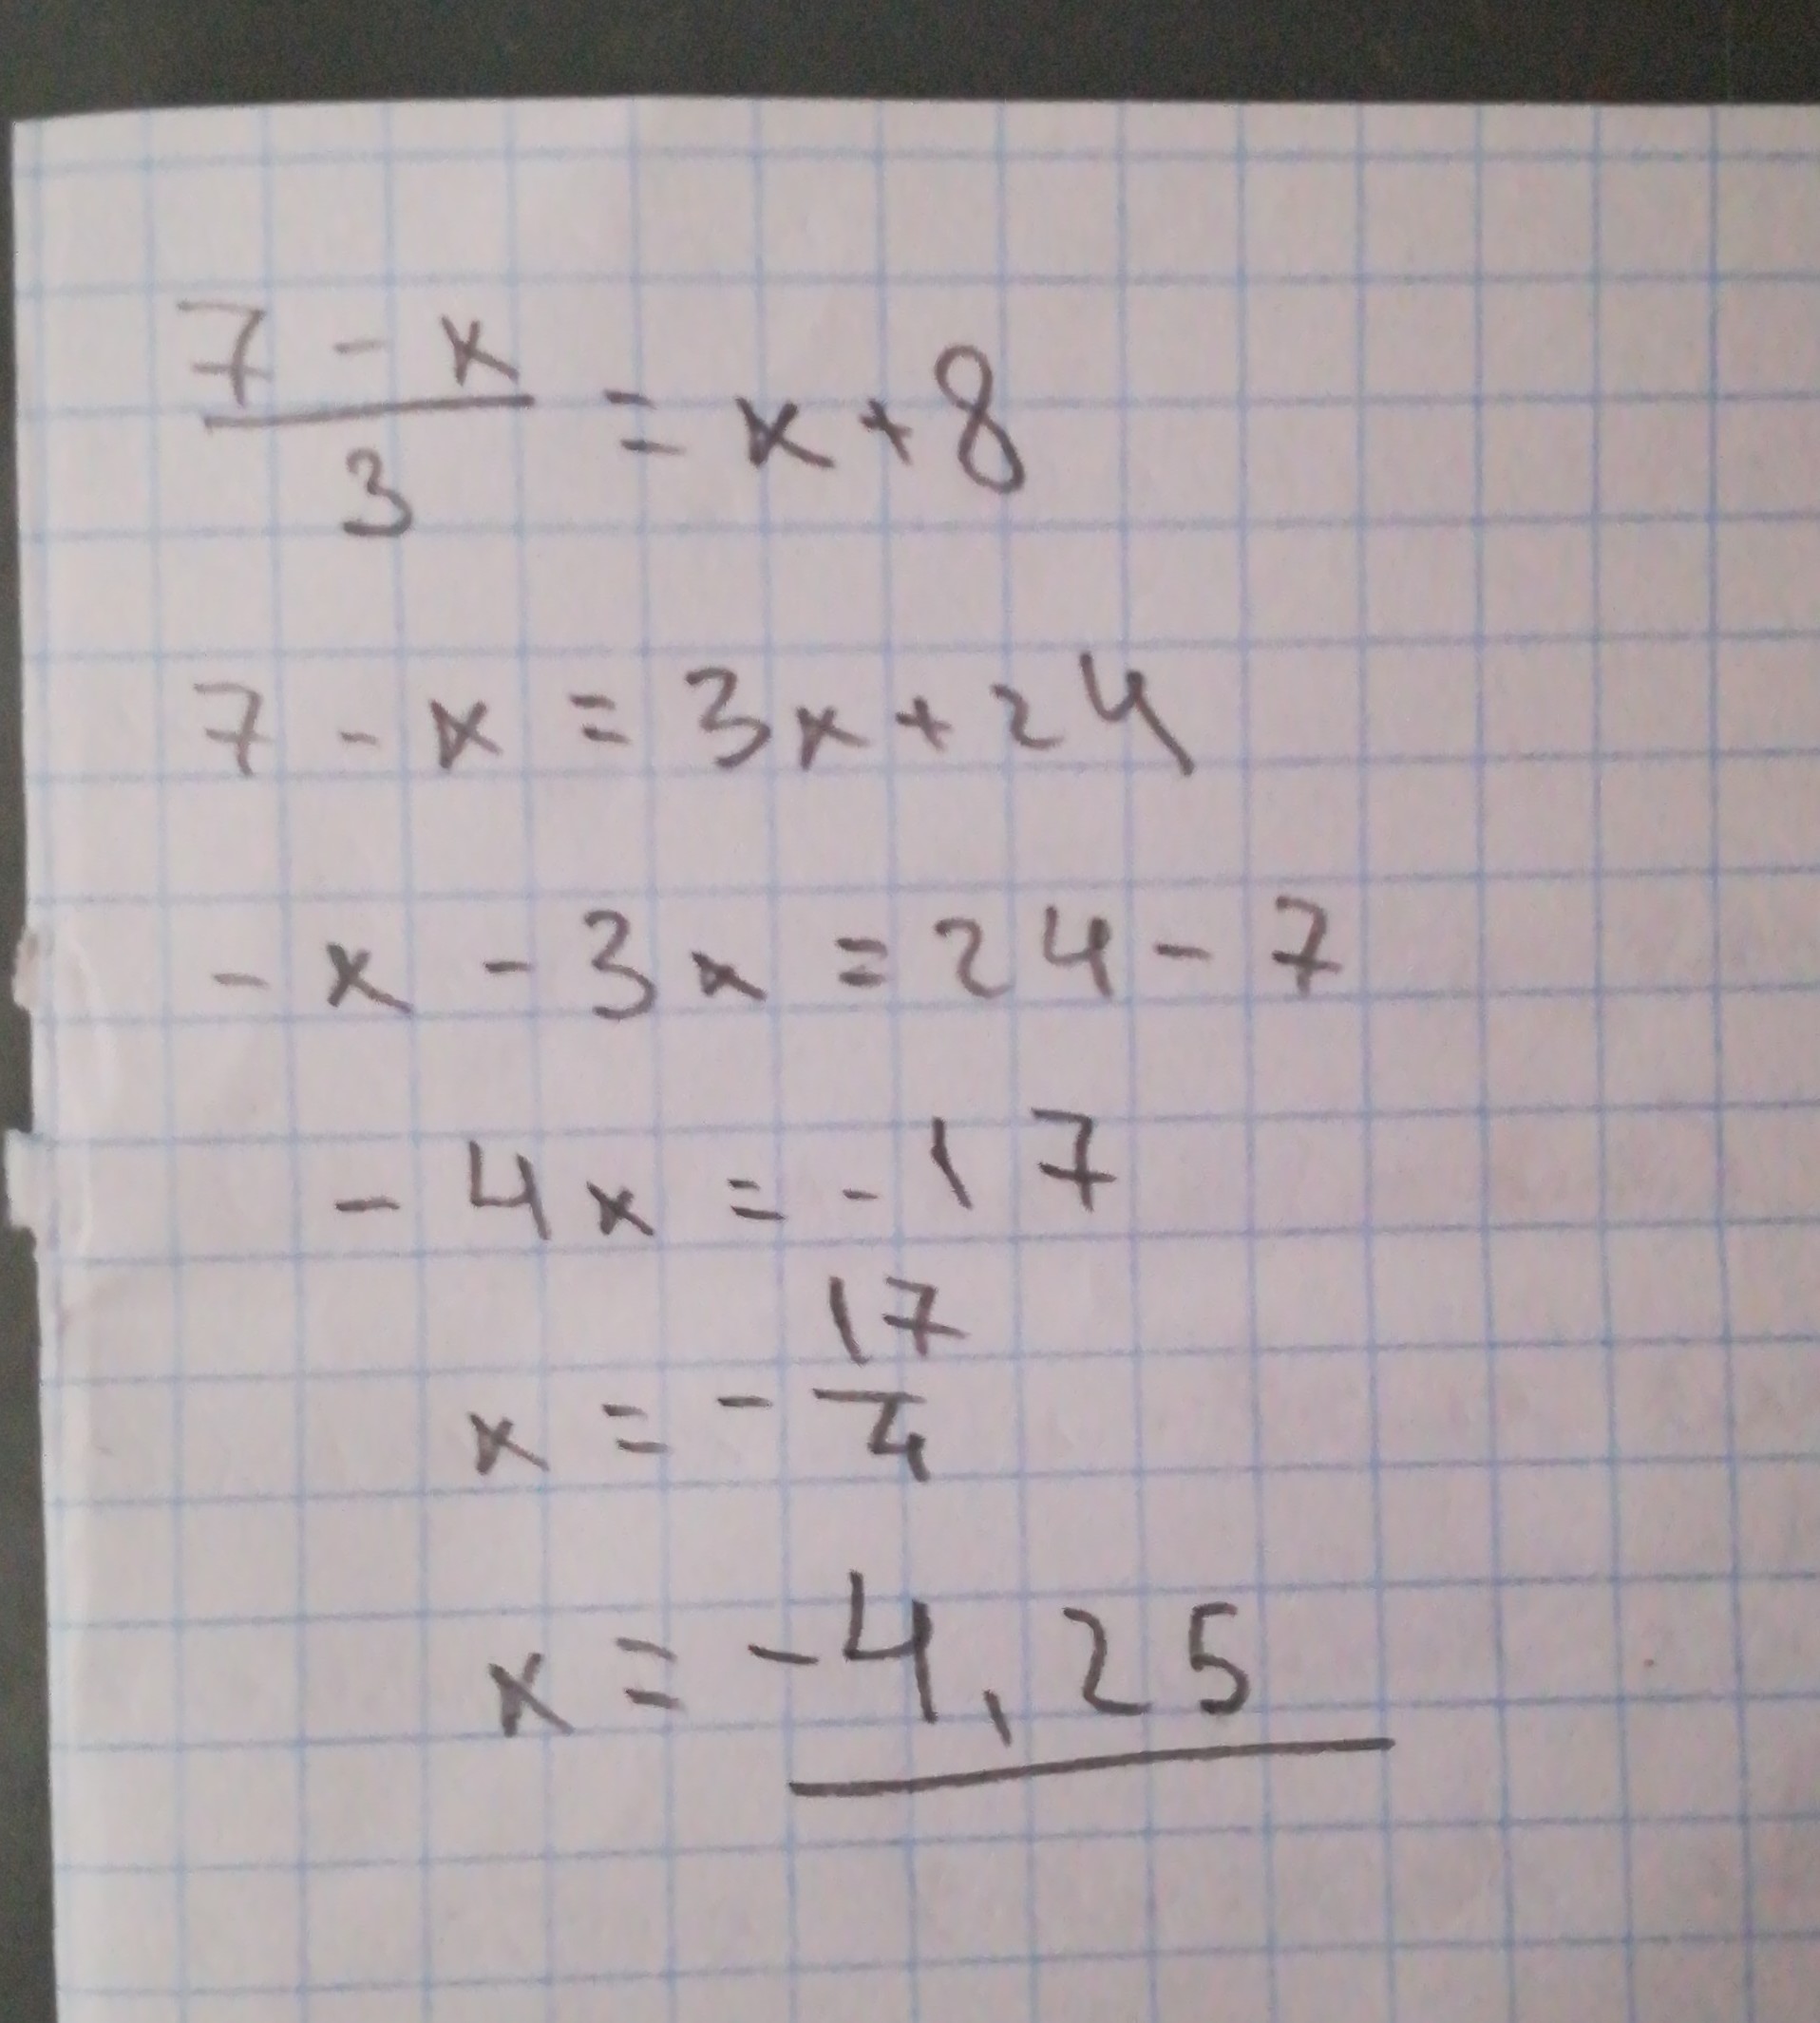 7 - x / 3 = x + 8
7 - x = 3x + 24
- x - 3x = 24 - 7
- 4x = - 17
x = - 17/4
x = -4,25